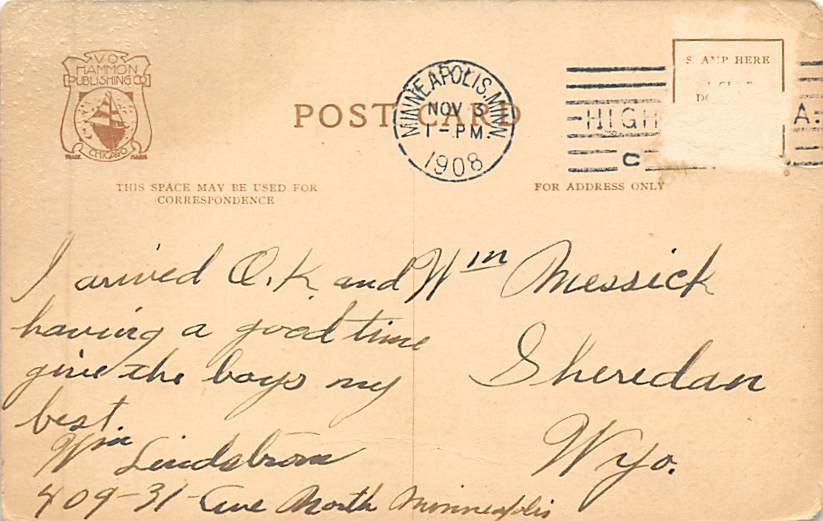 V.O.
HAMMON
PUBLISHING CO
CHICAGO
TRADE MARK
POST CARD
MINNEAPOLIS, MINN.
NOV 3
1-PM.
1908
HIGH
C
A:
STAMP HERE
THIS SPACE MAY BE USED FOR
CORRESPONDENCE
FOR ADDRESS ONLY
I arived O.K. and
having a good time
give the boys my
best.
Wm Lindstrom
409-31- Ave North Minneapolis
Wm Messick
Sheredan
Wyo.